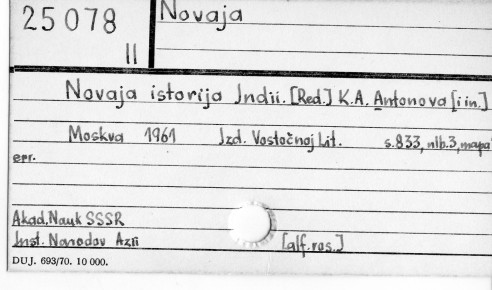 25 078
II
Novaja
Novaja istorija Indii. [Red.] K.A. Antonova [i in.]
Moskva 1961 Izd. Vostočnoj Lit. s.833, nlb.3, mapa
epr.
Akad. Nauk SSSR
Inst. Narodov Azii
[alf. ros.]
DUJ. 693/70. 10 000.